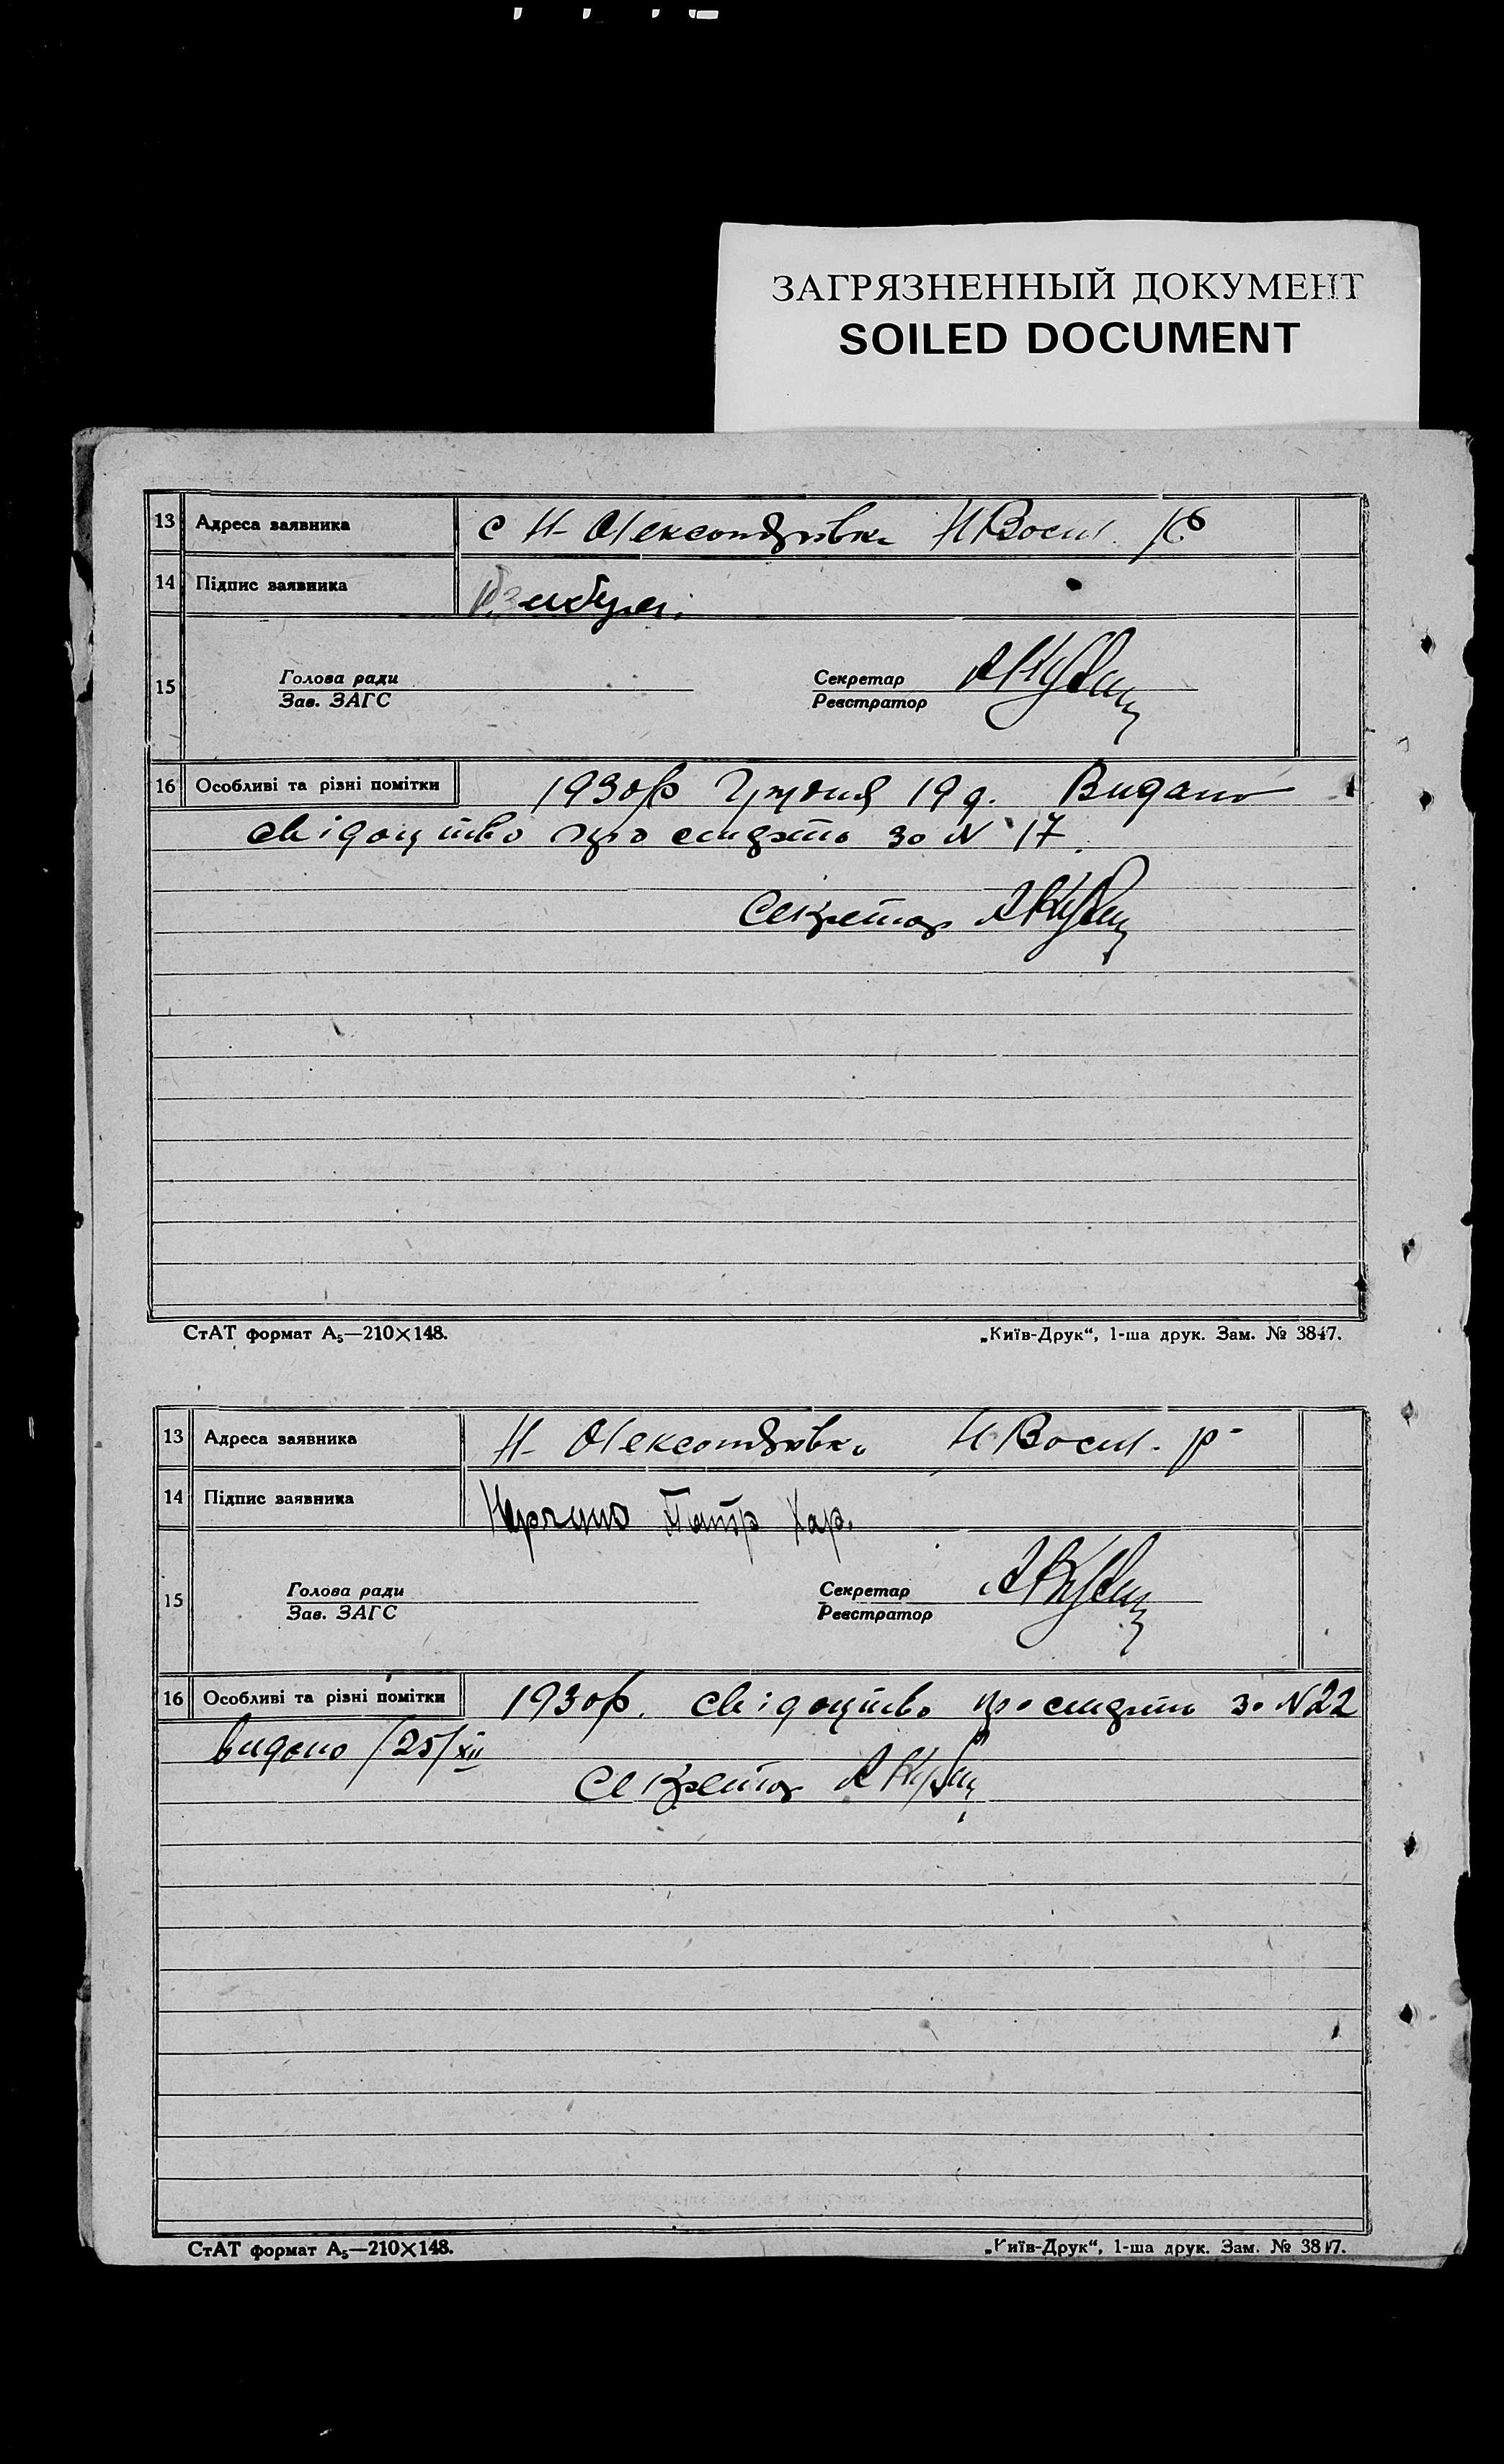 ЗАГРЯЗНЕННЫЙ ДОКУМЕНТ
SOILED DOCUMENT
13 Адреса заявника с Н- Олександрівка Н Васил.
14 Підпис заявника
15 Голова ради Секретар
Зав. ЗАГС Реєстратор
16 Особливі та різні помітки 1930 р Грудня 19 д. Видано
свідоцтво про смерть за N 17.
Секретар
СтАТ формат А5—210×148. „Київ-Друк“, 1-ша друк. Зам. № 3847.
13 Адреса заявника Н- Олександрівка Н Васил. р-
14 Підпис заявника Хар.
15 Голова ради Секретар
Зав. ЗАГС Реєстратор
16 Особливі та різні помітки 1930 р. свідоцтво про смерть за N 22
видано /25/XII
Секретар
СтАТ формат А5—210×148. „Київ-Друк“, 1-ша друк. Зам. № 3847.